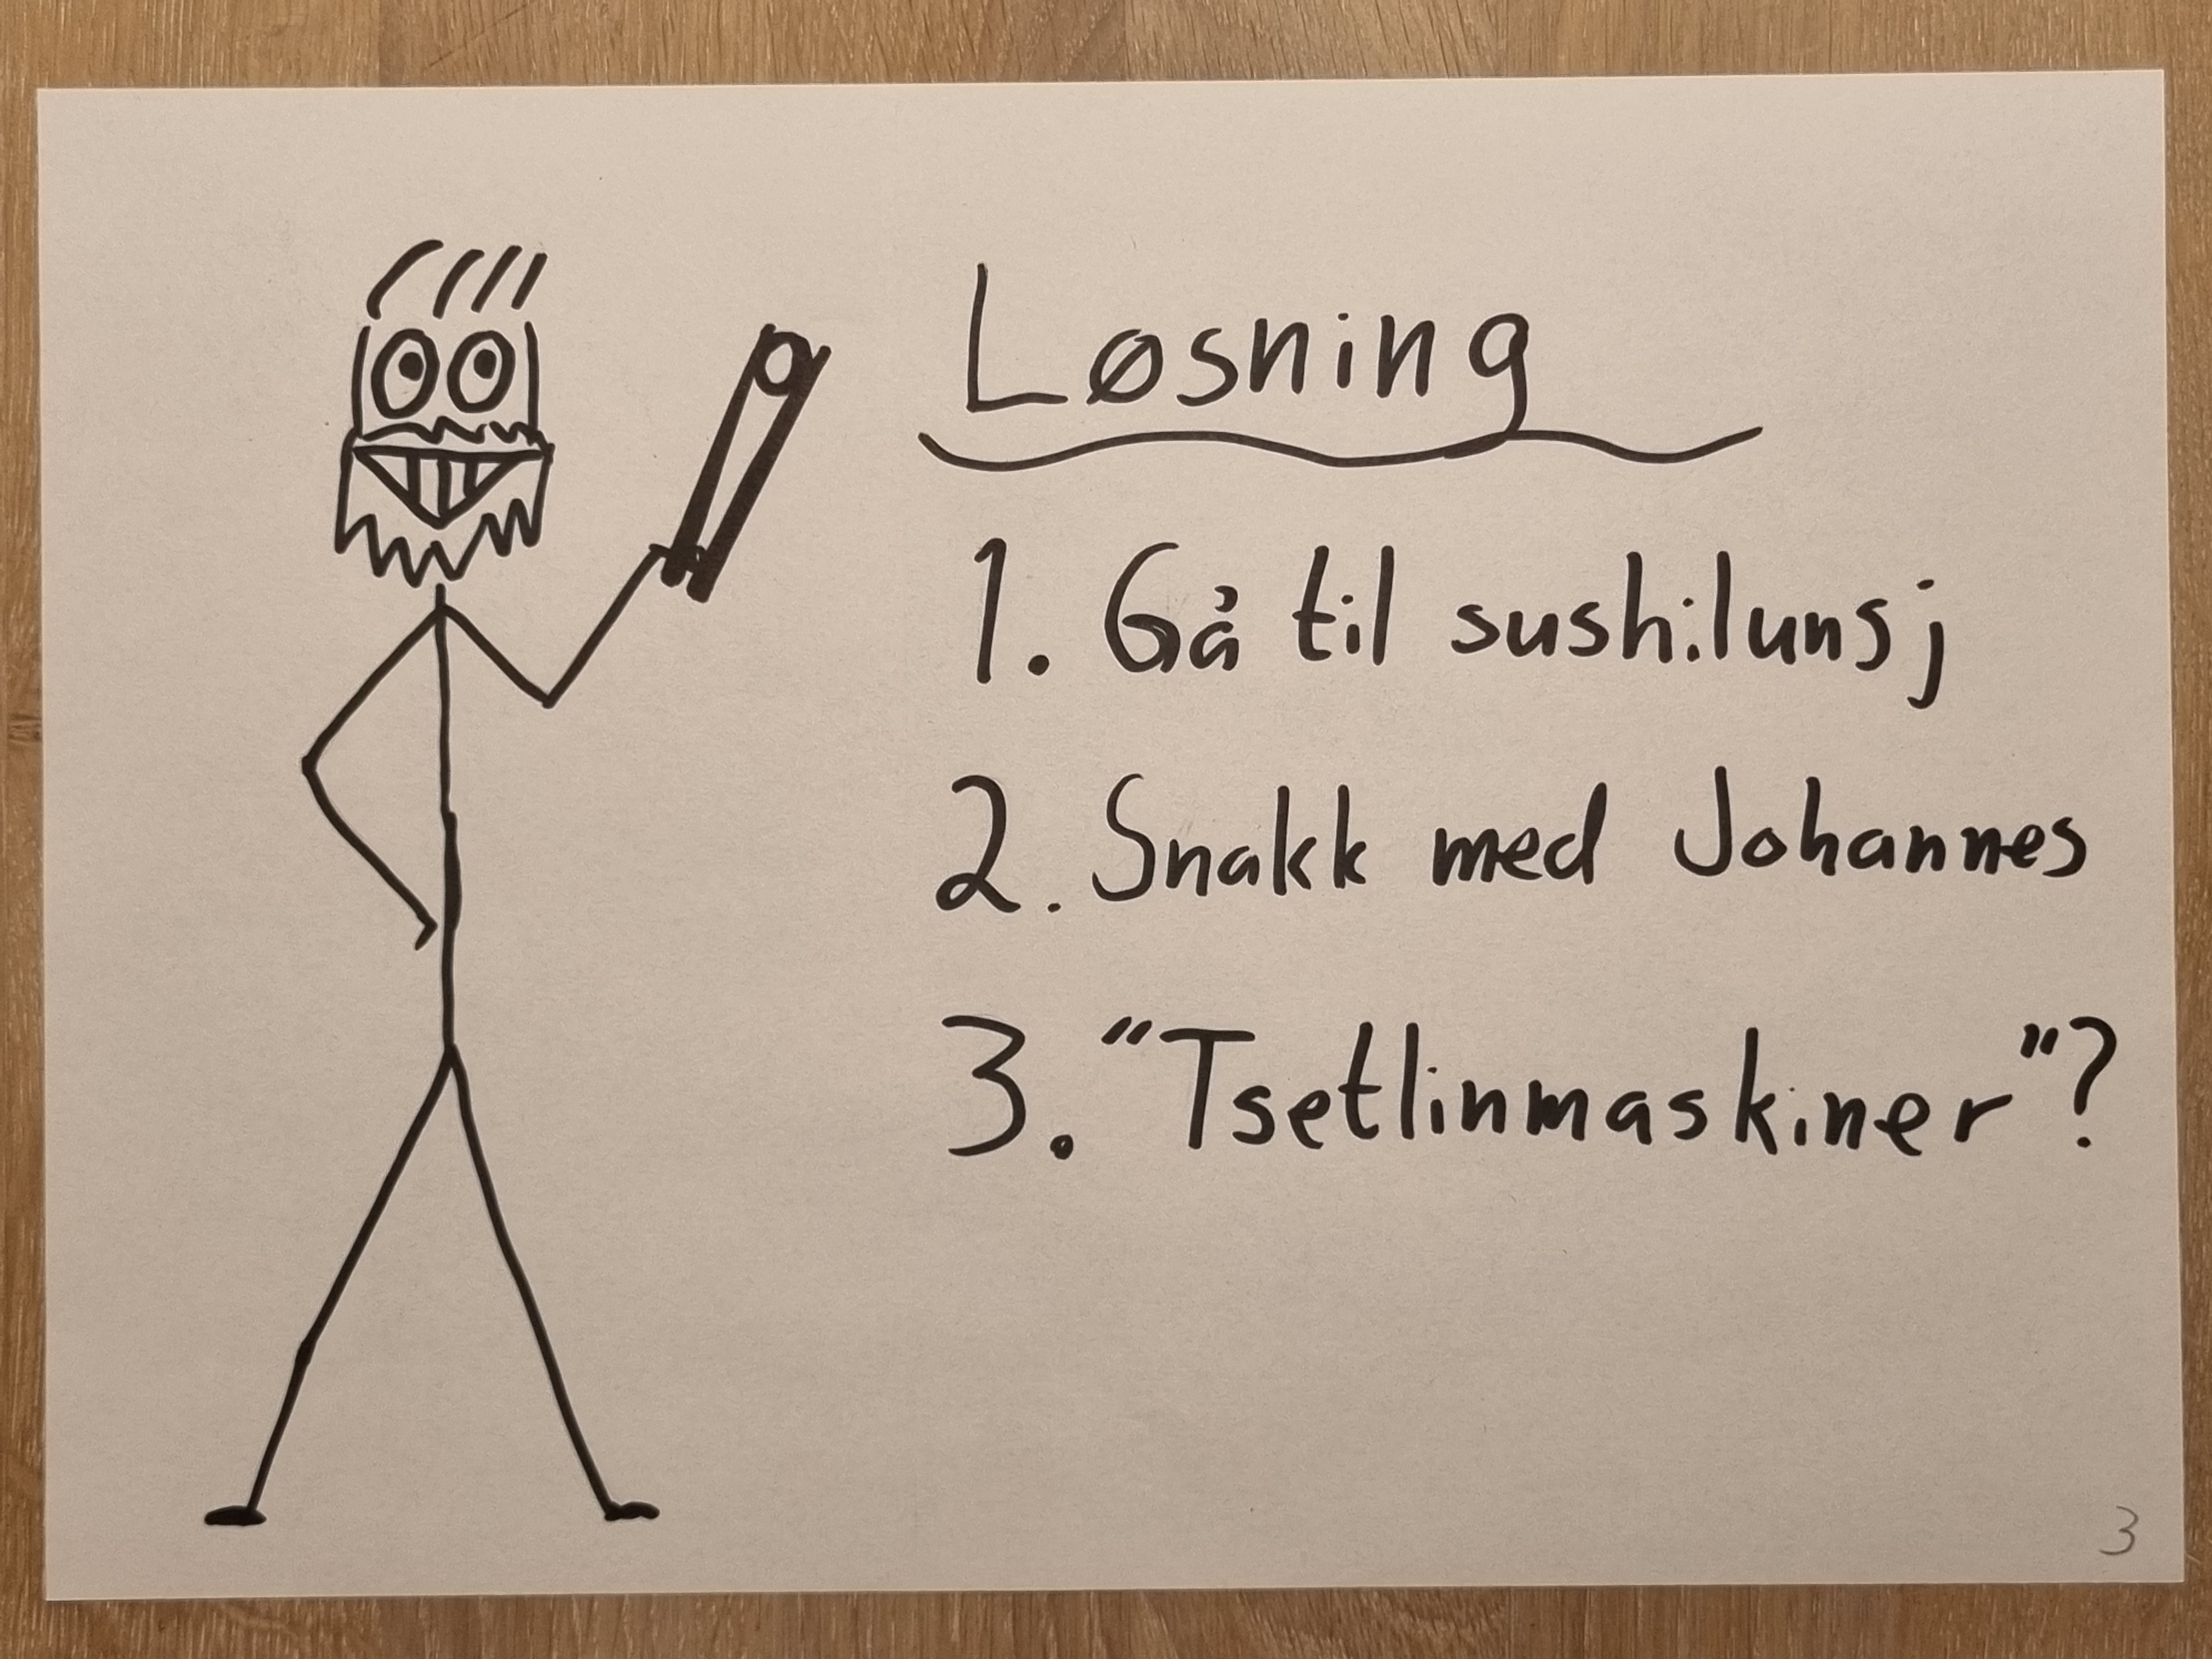 Løsning
1. Gå til sushilunsj
2. Snakk med Johannes
3. "Tsetlinmaskiner"?
3